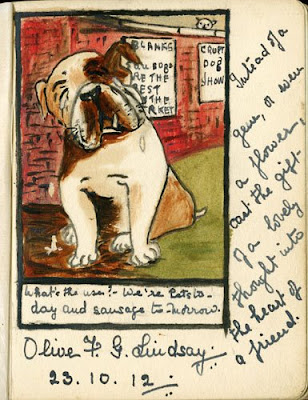 BLANKS
SAUBOBS
ARE THE
BEST
IN THE
MARKET
CRUFT
DOG
SHOW
What's the use?- We're Pets to-
day and sausage to-morrow.
Olive F. G. Lindsay.
23.10.12
Instead of a
gem, or even
a flower,
cast the gift
of a lovely
thought into
the heart of
a friend.